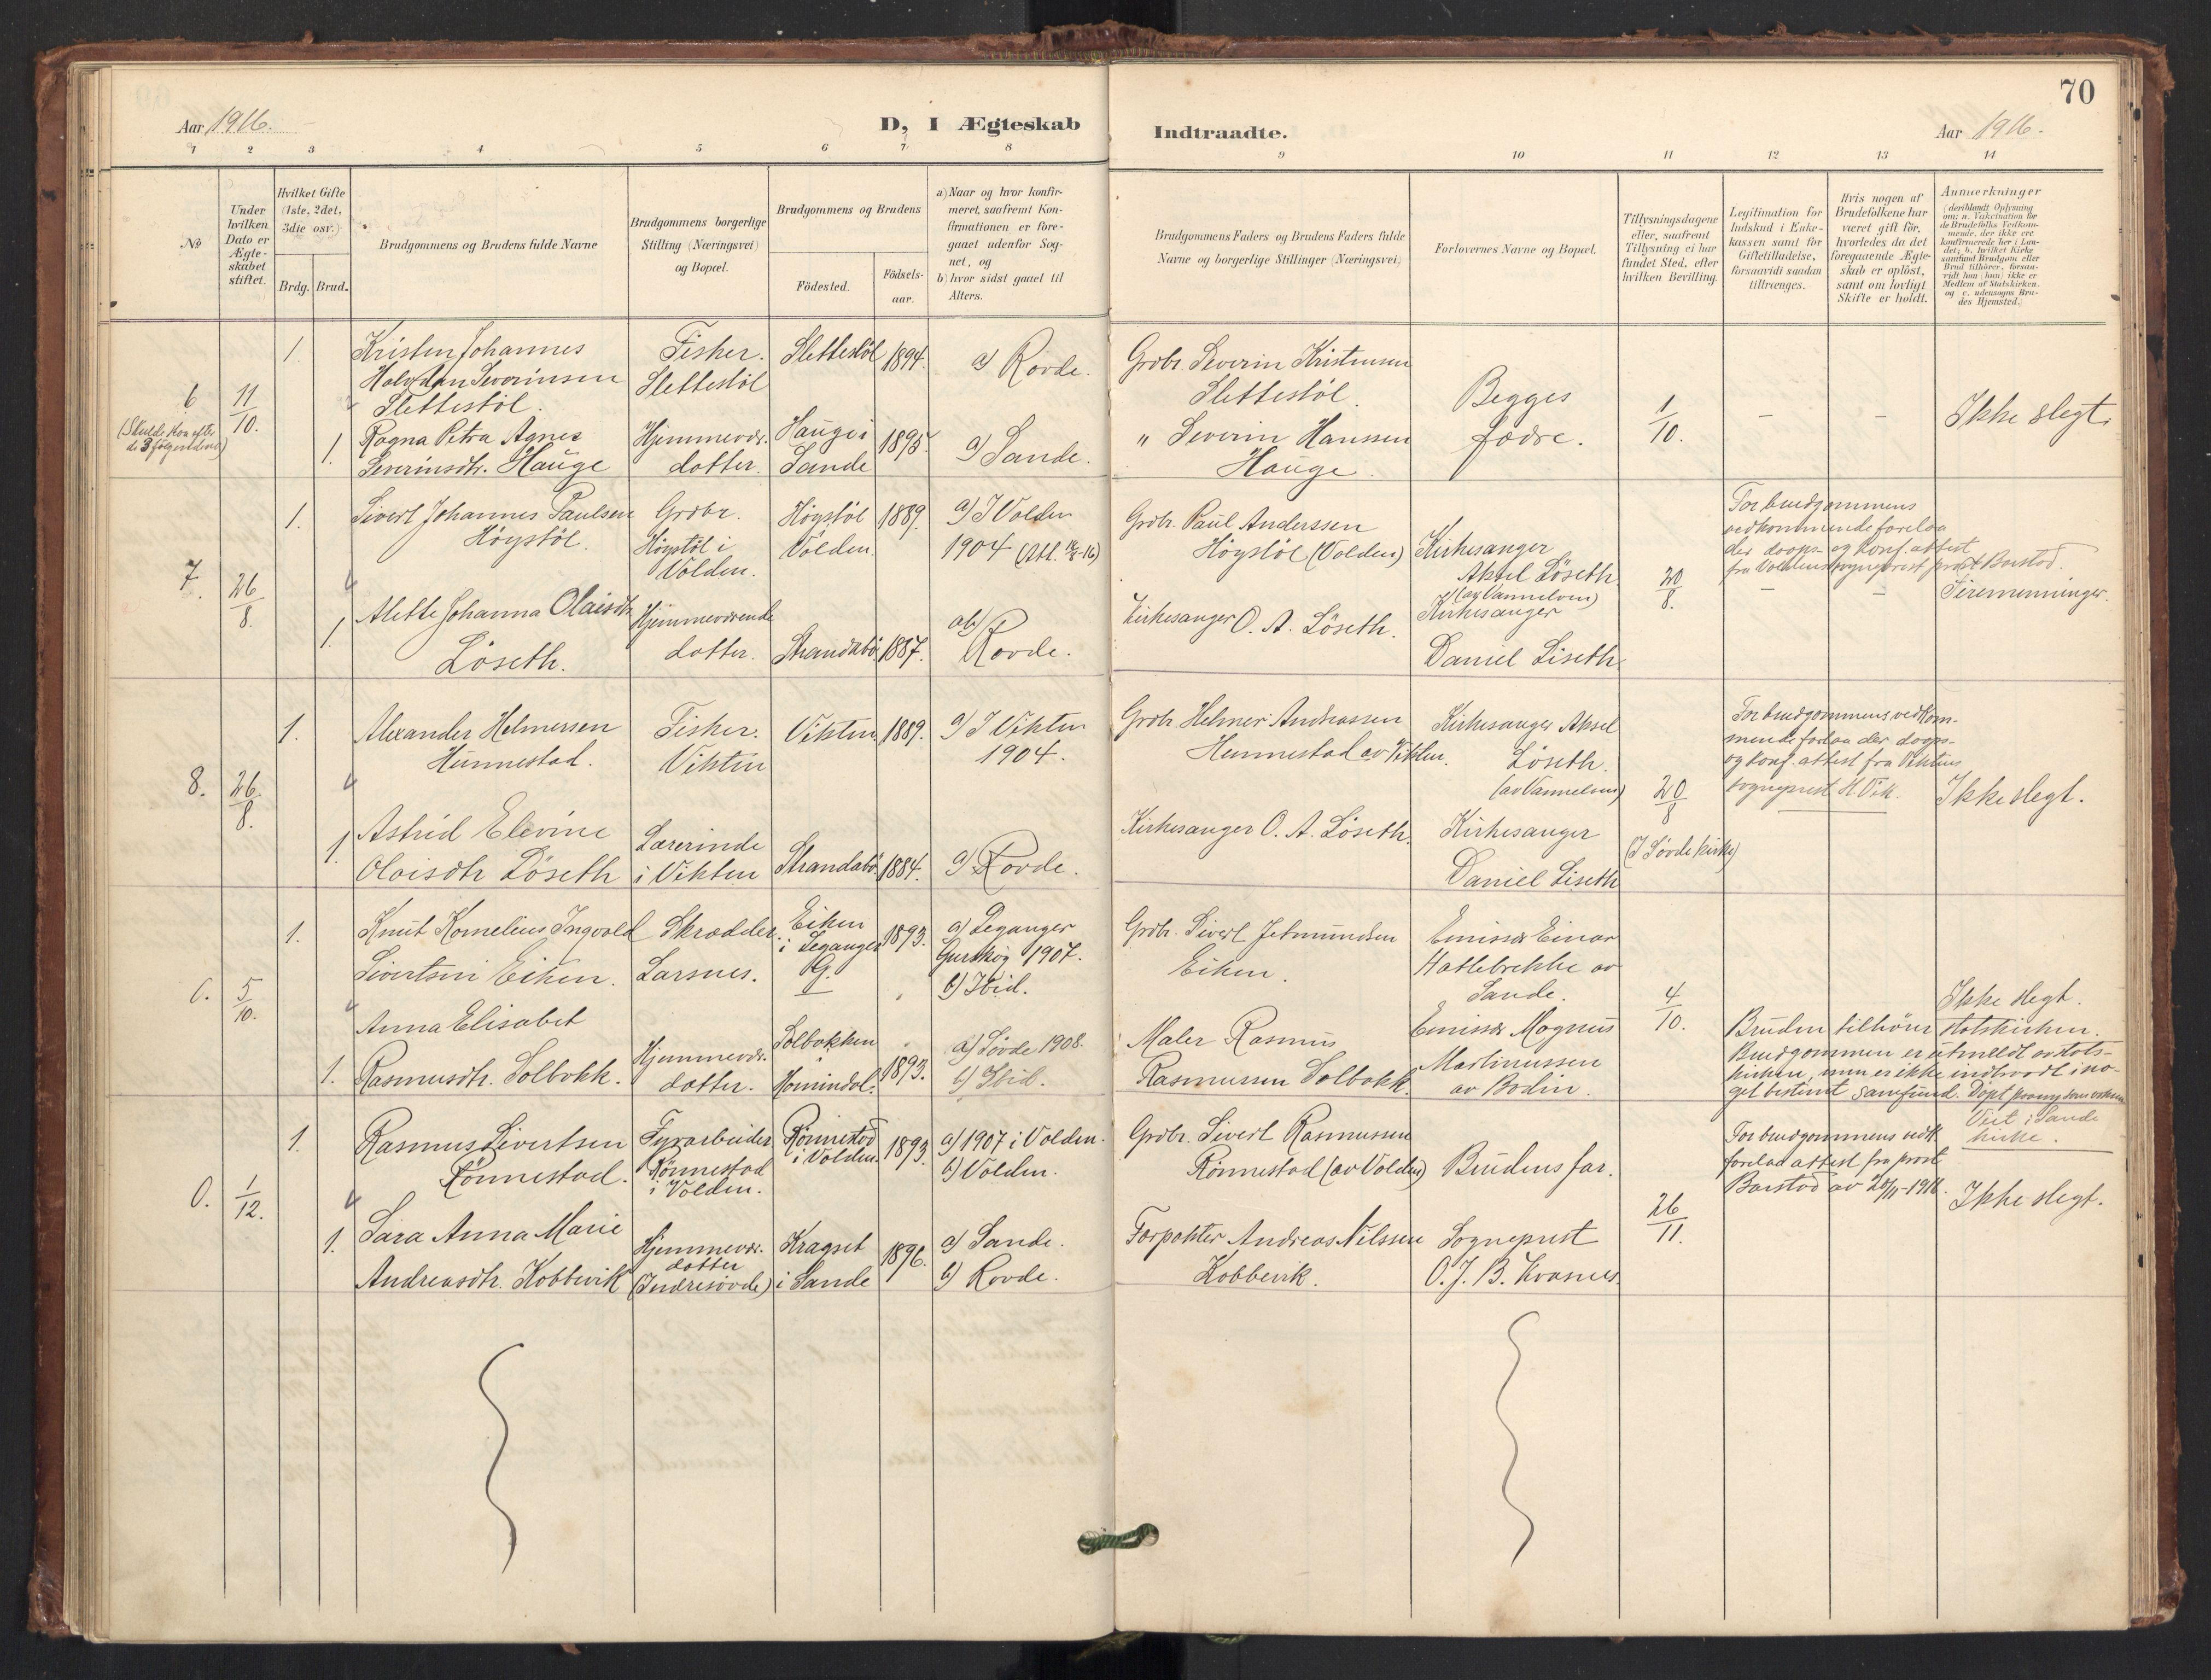 70
Aar 1916.
D, I Ægteskab
Indtraadte.
Aar 1916.
1 2 3 4 5 6 7 8 9 10 11 12 13 14
№
Under
hvilken
Dato er
Ægte-
skabet
stiftet.
Hvilket Gifte
(1ste, 2det,
3die osv.)
Brdg. Brud.
Brudgommens og Brudens fulde Navne
Brudgommens borgerlige
Stilling (Næringsvei)
og Bopæl.
Brudgommens og Brudens
Födested.
Födsels-
aar.
a) Naar og hvor konfir-
meret, saafremt Kon-
firmationen er fore-
gaaet udenfor Sog-
net, og
b) hvor sidst gaaet til
Alters.
Brudgommens Faders og Brudens Faders fulde
Navne og borgerlige Stillinger (Næringsvei)
Forlovernes Navne og Bopæl.
Tillysningsdagene
eller, saafremt
Tillysning ei har
fundet Sted, efter
hvilken Bevilling.
Legitimation for
Indskud i Enke-
kassen samt for
Giftetilladelse,
forsaavidt saadan
tiltrænges.
Hvis nogen af
Brudefolkene har
været gift för,
hvorledes da det
foregaaende Ægte-
skab er oplöst,
samt om lovligt
Skifte er holdt.
Anmærkninger
(deriblandt Oplysning
om: a. Vakcination for
de Brudefolks Vedkom-
mende, der ikke ere
konfirmerede her i Lan-
det; b. hvilket Kirke
samfund Brudgom eller
Brud tilhörer, forsaa-
vidt han (hun) ikke er
Medlem af Statskirken
og c. udensogns Bru-
des Hjemsted.)
6
(Skulde kom efter
de 3 følgendene)
11/10.
1.
Kristen Johannes
Halvdan Severinsen
Slettestöl.
Fisker.
Slettestöl
Slettestöl
1894.
a) Rovde.
Grdbr. Severin Kristensen
Slettestöl.
Begges
fædre.
1/10.
–
–
Ikke slegt.
1.
Ragna Petra Agnes
Severinsdtr. Hauge
Hjemmevær.
datter.
Hauge i
Sande
1895.
a) Sande.
" Severin Hanssen
Hauge.
7.
26/8.
1.
Sivert Johannes Paulsen
Högstöl.
Grdbr.
Högstöl i
Volden.
Högstöl
Volden.
1889.
a) I Volden
1904
Grdbr. Paul Anderssen
Högstöl (Volden)
Kirkesanger
Aksel Löseth
(av Vannelven)
20/8.
For brudgommens
vedkommende forelaa
der daaps- og konf. attest
fra Voldens sogneprest prost Barstad.
–
–
Firemenninger.
1.
Alette Johanna Olaisdtr.
Löseth.
Hjemmeværende
datter.
Strandabö
1887.
ab) Rovde.
Kirkesanger O. A. Löseth.
Kirkesanger
Daniel Liseth.
8.
26/8.
1.
Alexander Helmersen
Hunnestad.
Fisker.
Vikten
Vikten
1889.
a) I Vikten
1904.
Grdbr. Helmer Andreassen
Hunnestad av Vikten.
Kirkesanger Aksel
Löseth.
(av Vannelven)
20/8
(I Sövde kirke)
For brudgommens vedkom-
mende forlaa der daaps-
og konf. attest fra Viktens
sogneprest H. Vik.
Ikke slegt.
1.
Astrid Elevine
Olaisdtr Löseth
Lærerinde
i Vikten
Strandabö
1884.
a) Rovde.
Kirkesanger O. A. Löseth.
Kirkesanger
Daniel Liseth
5/10.
1.
Knut Kornelius Ingvald
Sivertsen Eiken.
Skrædder.
Larsnes.
Eiken
i Leganger
G.
1893.
a) Leganger
Gurskög 1907.
b) Ibid.
Grdbr. Sivert Jetmundsen
Eiken.
Emissær Einar
Hatlebrekke av
Sande.
4/10.
Ikke slegt.
Bruden tilhörer statskirken.
Brudgommen er utmeldt av stats-
kirken, men er ikke indtraadt i no-
get bestemt samfund.
1.
Anna Elisabet
Rasmusdtr. Solbakk.
Hjemmevær.
datter.
Solbakken
i
Hornindal.
1893.
a) Sövde 1908.
b) Ibid.
Maler Rasmus
Rasmussen Solbakk.
Emissær Magnus
Martinussen
av Bodin.
Viet i Sande
kirke.
0.
1/12.
1.
Rasmus Sivertsen
Rönnestad.
Fyrarbeider
Rönnestad
i Volden.
Rönnestad
i Volden.
1893.
a) 1907 i Volden.
b) Volden.
Grdbr. Sivert Rasmussen
Rönnestad (av Volden)
Brudens far.
26/11.
For brudgommens vedk.
forelaa attest fra prost
Barstad av 20/11-1916.
Ikke slegt.
1.
Sara Anna Marie
Andreasdtr. Kobbevik
Hjemmevær.
datter
(Indresövde)
Kragset
i Sande
1896.
a) Sande.
b) Rovde.
Forpakter Andreas Nilssen
Kobbevik.
Sogneprest
O. J. B. Kvasnes.